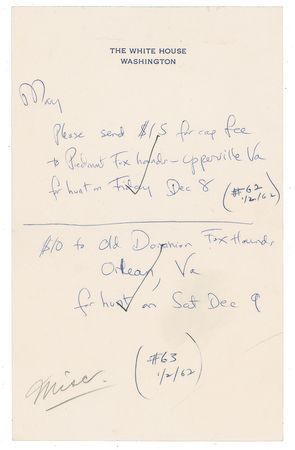 THE WHITE HOUSE
WASHINGTON
May
Please send $15 for cap fee
to Piedmont Fox hounds - Upperville Va
for hunt on Friday Dec 8
(#62
1/2/62)
$10 to Old Dominion Fox Hounds
Orlean, Va
for hunt on Sat Dec 9
(#63
1/2/62)
Misc.